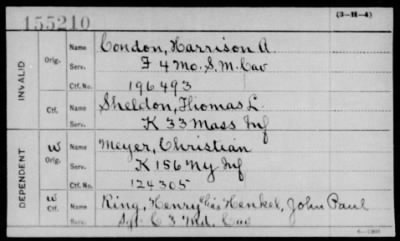 155210
(3-H-4)
INVALID
Orig.
Name Condon, Harrison A
Serv. F 4 Mo. S. M. Cav
Ctf. No. 196493
Ctf.
Name Sheldon, Thomas L.
Serv. K 33 Mass Inf
DEPENDENT
W
Orig.
Name Meyer, Christian
Serv. K 156 NY Inf
Ctf. No. 124305
W
Ctf.
Name King, Henry alias Henkel, John Paul
Serv. Sgt. C 3 Md. Cav